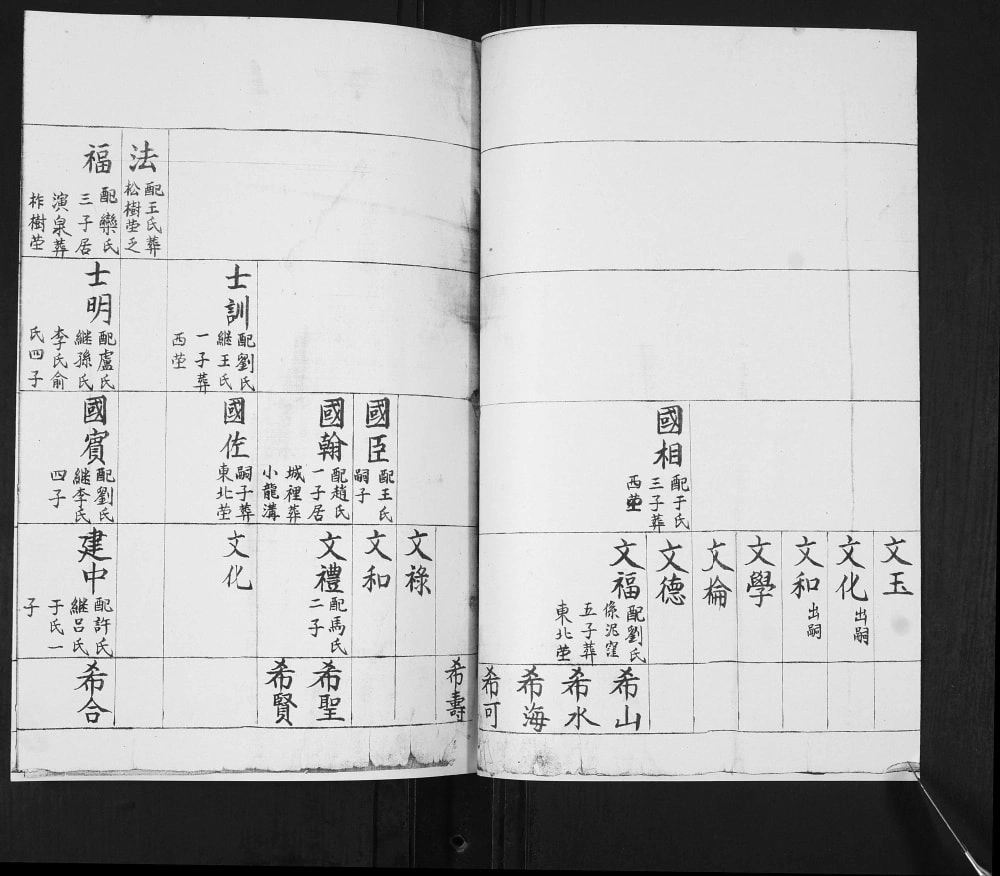 國相
配于氏
三子葬
西塋
文玉
文化
出嗣
文和
出嗣
文學
文棆
文德
文福
配劉氏
係泥窪
五子葬
東北塋
希山
希水
希海
希可
法
配王氏葬
松樹塋之
福
配欒氏
三子居
演泉葬
柞樹塋
士訓
配劉氏
継王氏
一子葬
西塋
士明
配盧氏
継孫氏
李氏俞
氏四子
國臣
配王氏
嗣子
國翰
配趙氏
一子居
城裡葬
小龍溝
國佐
嗣子葬
東北塋
國賓
配劉氏
継李氏
四子
文祿
文和
文禮
配馬氏
二子
文化
建中
配許氏
継呂氏
于氏一
子
希壽
希聖
希賢
希合